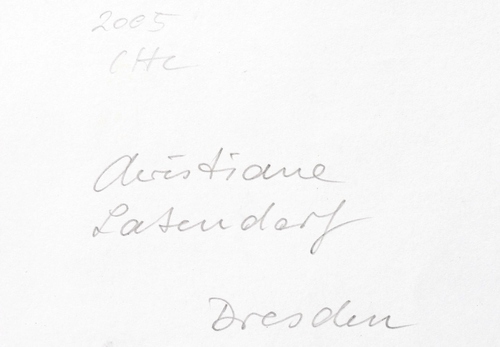 2005
CHL
Christiane
Latendorf
Dresden